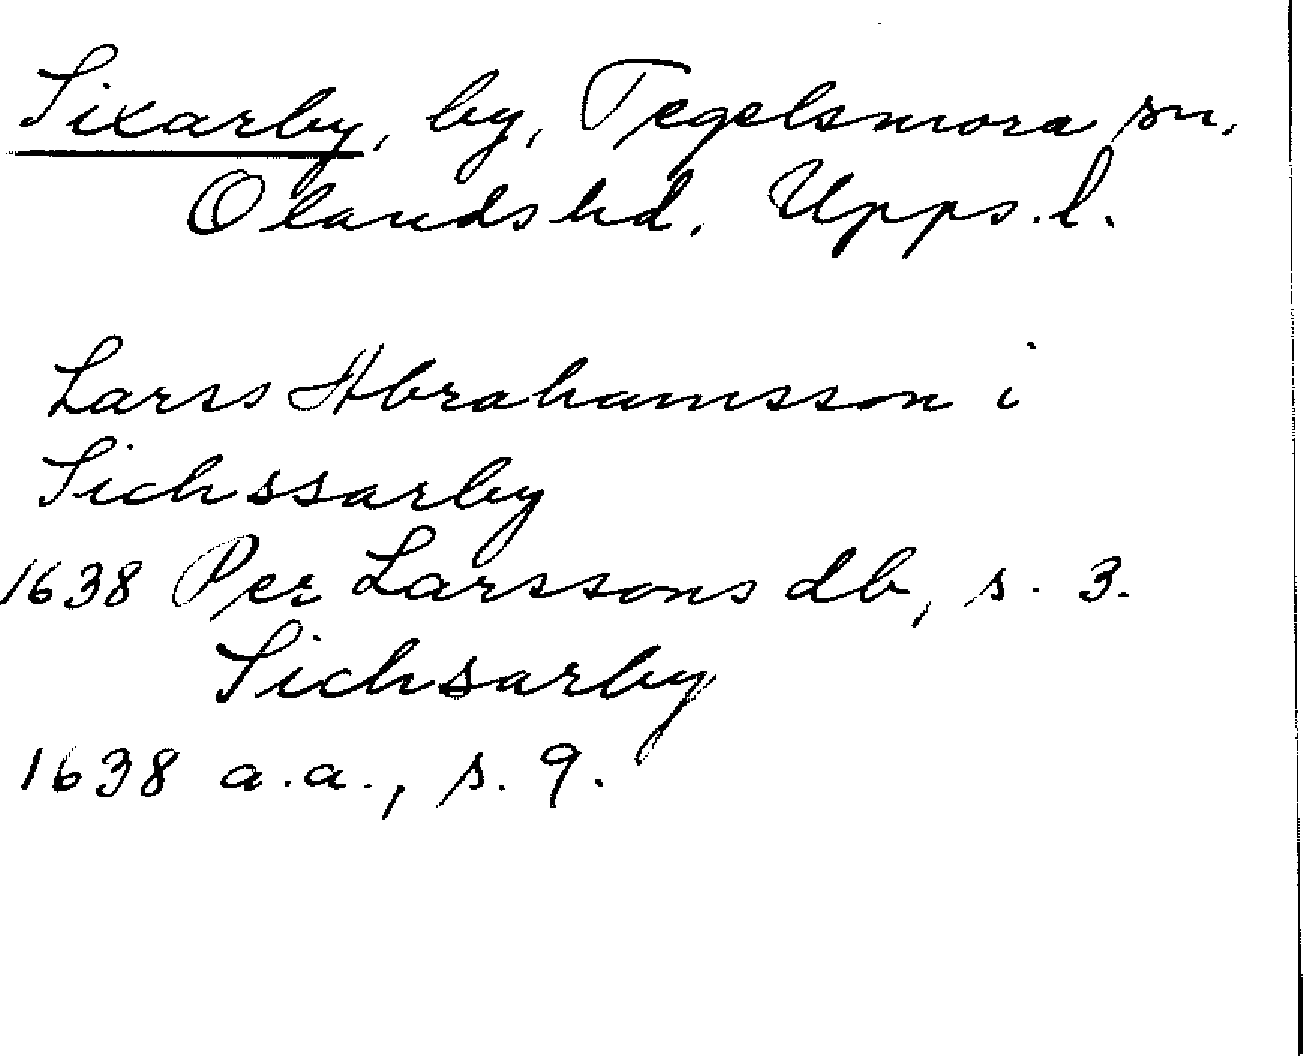 Sixarby, by, Tegelsmora sn,
Olands hd. Upps. l.
Larss Abrahamsson i
Sichssarby
1638 Per Larssons db, s. 3.
Sichsarby
1638 a.a., s. 9.